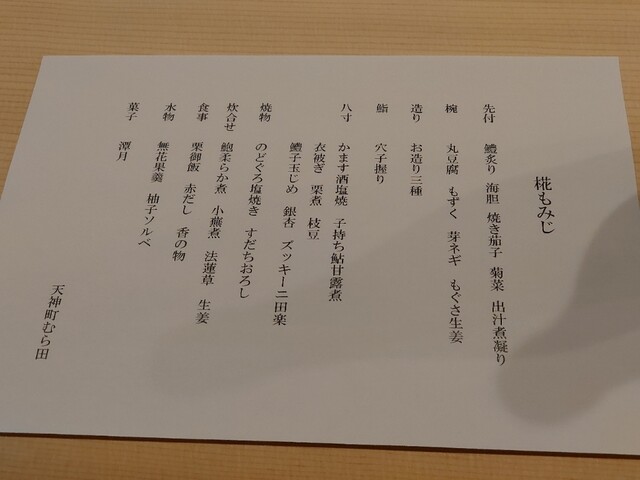 椛もみじ
先付 鱧炙り 海胆 焼き茄子 菊菜 出汁煮凝り
椀 丸豆腐 もずく 芽ネギ もぐさ生姜
造り お造り三種
鮨 穴子握り
八寸 かます酒塩焼 子持ち鮎甘露煮
衣被ぎ 栗煮 枝豆
鱧子玉じめ 銀杏 ズッキーニ田楽
焼物 のどぐろ塩焼き すだちおろし
炊合せ 鮑柔らか煮 小蕪煮 法蓮草 生姜
食事 栗御飯 赤だし 香の物
水物 無花果羹 柚子ソルベ
菓子 潭月
天神町むら田